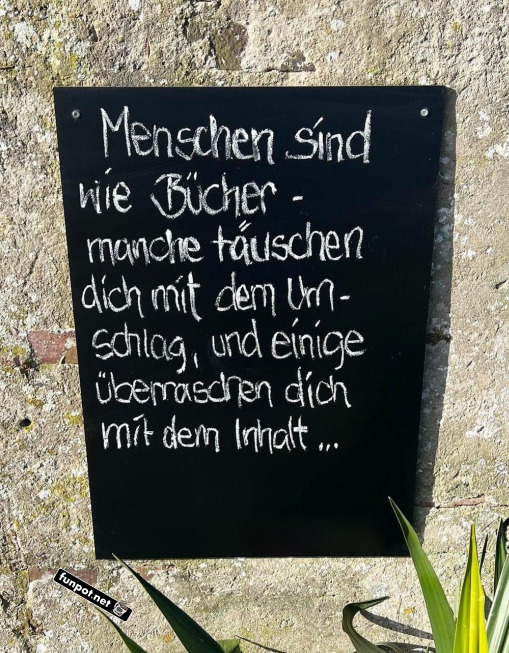 Menschen sind
wie Bücher -
manche täuschen
dich mit dem Um-
schlag, und einige
überraschen dich
mit dem Inhalt ...
funpot.net